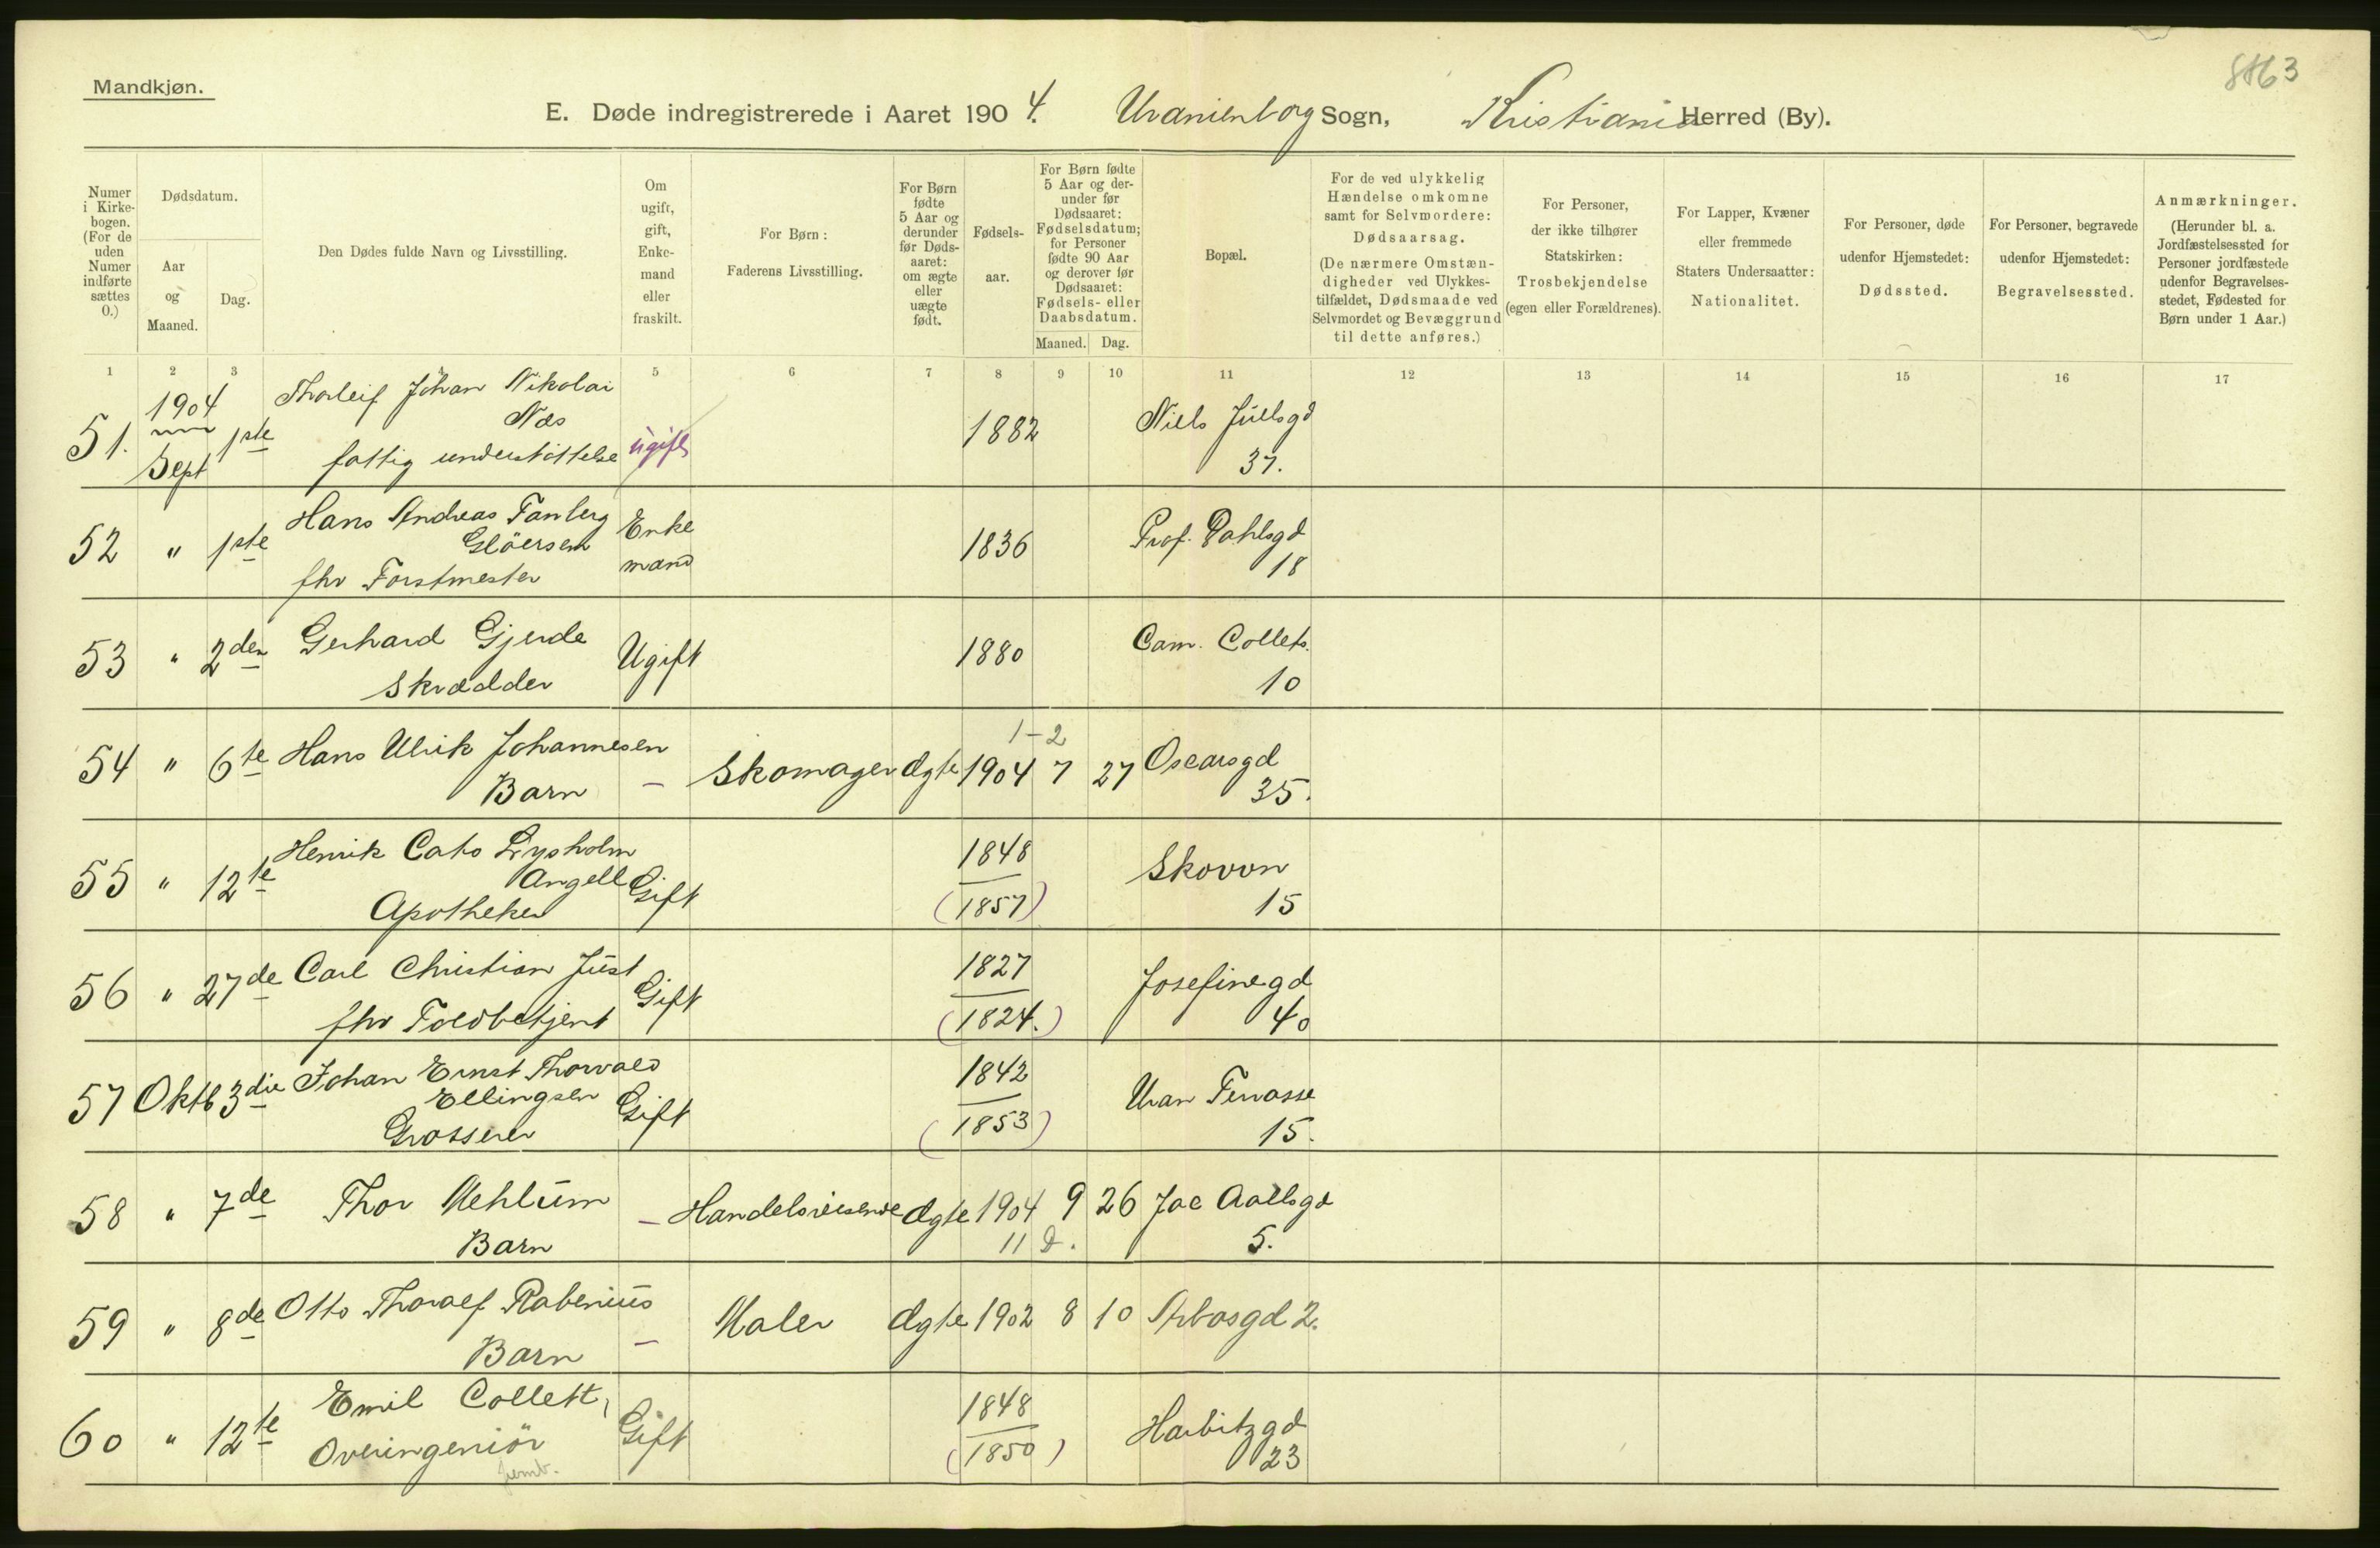 Mandkjøn.
E. Døde indregistrerede i Aaret 1904. Uranienborg Sogn, Kristiania Herred (By).
Numer i Kirkebogen. (For de uden Numer indførte sættes 0.)
Dødsdatum.
Aar og Maaned.
Dag.
Den Dødes fulde Navn og Livsstilling.
Om ugift, gift, Enkemand eller fraskilt.
For Børn: Faderens Livsstilling.
For Børn fødte 5 Aar og derunder før Dødsaaret: om ægte eller uægte født.
Fødselsaar.
For Børn fødte 5 Aar og derunder før Dødsaaret: Fødselsdatum; for Personer fødte 90 Aar og derover før Dødsaaret: Fødsels- eller Daabsdatum.
Maaned. Dag.
Bopæl.
For de ved ulykkelig Hændelse omkomne samt for Selvmordere: Dødsaarsag. (De nærmere Omstændigheder ved Ulykkestilfældet, Dødsmaade ved Selvmordet og Bevæggrund til dette anføres.)
For Personer, der ikke tilhører Statskirken: Trosbekjendelse (egen eller Forældrenes).
For Lapper, Kvæner eller fremmede Staters Undersaatter: Nationalitet.
For Personer, døde udenfor Hjemstedet: Dødssted.
For Personer, begravede udenfor Hjemstedet: Begravelsessted.
Anmærkninger. (Herunder bl. a. Jordfæstelsessted for Personer jordfæstede udenfor Begravelsesstedet, Fødested for Børn under 1 Aar.)
1 2 3 5 6 7 8 9 10 11 12 13 14 15 16 17
1904 Thorleif Johan Nikolai
51. Sept 1ste Næs ugift 1882 Niels Juelsgd
fattig understöttelse 37.
Hans Andreas Tanberg
52 " 1ste Glöersen Enke 1836 Prof. Dahlsgd
fhv Forstmester mand 18
53 " 2den Gerhard Gjerde Ugift 1880 Cam. Collets.
Skrædder 10
1-2
54 " 6te Hans Ulrik Johannesen — Skomager Ægte 1904 7 27 Oscarsgd
Barn 35.
Henrik Cato Lysholm 1848
55 " 12te Angell Gift Skovvn
Apotheker (1857) 15
56 " 27de Carl Christian Just Gift 1827 Josefinegd
fhv Toldbetjent (1824.) 40
Johan Ernst Thorvald 1842
57 Oktb 3die Ellingsen Gift Uran Terrasse
Grosserer (1853) 15.
58 " 7de Thor Mehlum — Handelsreisende Ægte 1904 9 26 Jac Aallsgd
Barn 11 D. 5.
59 " 8de Otto Thoralf Rabenius — Maler Ægte 1902 8 10 Arbosgd 2.
Barn
Emil Collett, 1848
60 " 12te Overingeniör Gift (1850) Harbitzgd
23